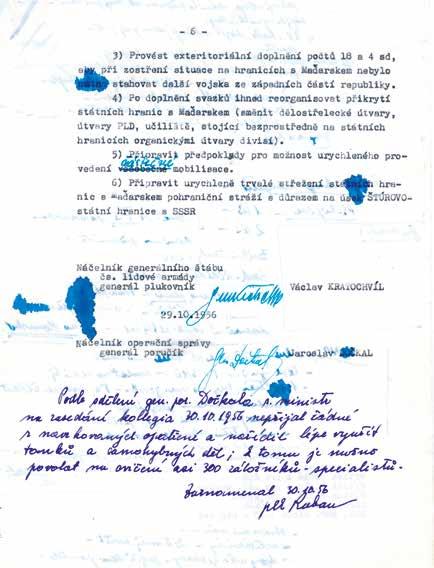 - 6 -
3) Provést exteritoriální doplnění počtů 18 a 4 sd,
aby při zostření situace na hranicích s Maďarskem nebylo
nutno stahovat další vojska ze západních částí republiky.
4) Po doplnění svazků ihned reorganisovat přikrytí
státních hranic s Maďarskem (směnit dělostřelecké útvary,
útvary PLD, učiliště, stojící bezprostředně na státních
hranicích organickými útvary divisí).
5) Připravit předpoklady pro možnost urychleného pro-
vedení částečné mobilisace.
6) Připravit urychleně trvalé střežení státních hra-
nic s Maďarskem pohraniční stráží s důrazem na úsek ŠTÚROVO-
státní hranice s SSSR
Náčelník generálního štábu
čs. lidové armády
generál plukovník
Václav KRATOCHVÍL
29.10.1956
Náčelník operační správy
generál poručík
Jaroslav DOČKAL
Podle sdělení gen. por. Dočkala s. ministr
na zasedání kolegia 30.10.1956 nepřijal žádné
z navrhovaných opatření a nařídil lépe využít
tanků a samohybných děl; k tomu je nutno
povolat na cvičení asi 300 záložníků-specialistů.
Zaznamenal 30.10.56